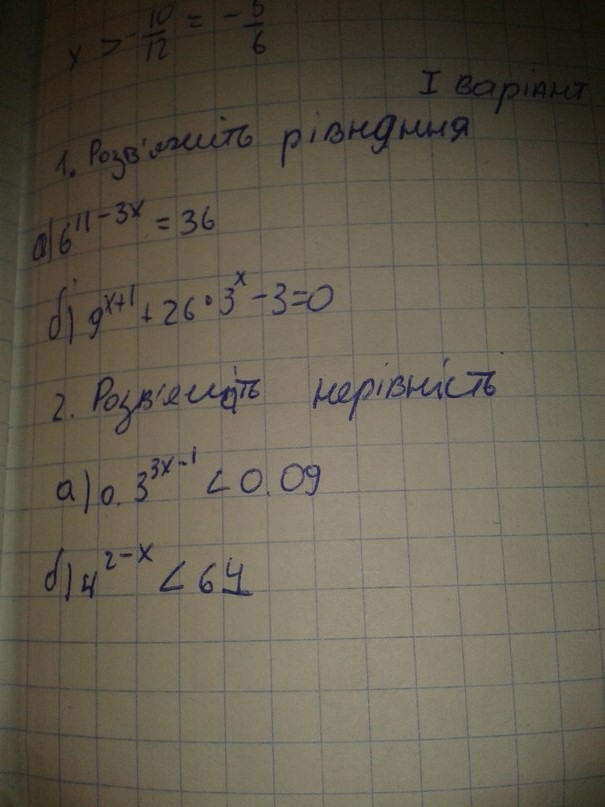 x > -10/12 = -5/6
I варіант
1. Розв'яжіть рівняння
а) 6^(11-3x) = 36
б) 9^(x+1) + 26•3^x - 3=0
2. Розв'яжіть нерівність
а) 0.3^(3x-1) < 0.09
б) 4^(2-x) < 64